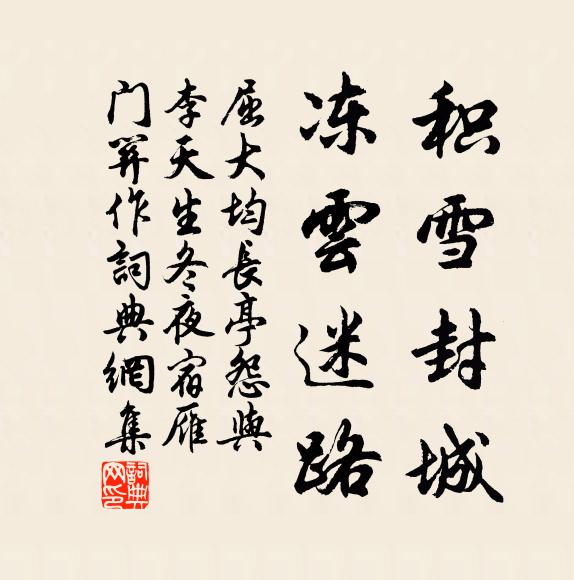 积雪封城
冻雲迷路
屈大均長亭怨與
李天生冬夜宿雁
门關作詞典網集
詞典
网印